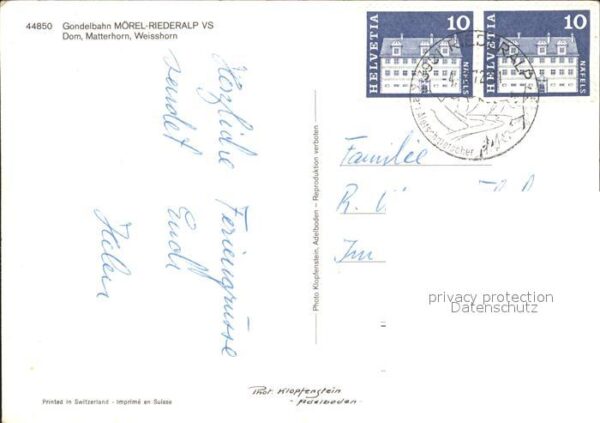 44850 Gondelbahn MÖREL-RIEDERALP VS
Dom, Matterhorn, Weisshorn
HELVETIA 10 NÄFELS
HELVETIA 10 NÄFELS
Herzliche Feriengrüsse
sendet Euch
Familie
R.
Im
privacy protection
Datenschutz
Photo Klopfenstein, Adelboden – Reproduktion verboten
Phot. Klopfenstein
- Adelboden -
Printed in Switzerland - Imprimé en Suisse